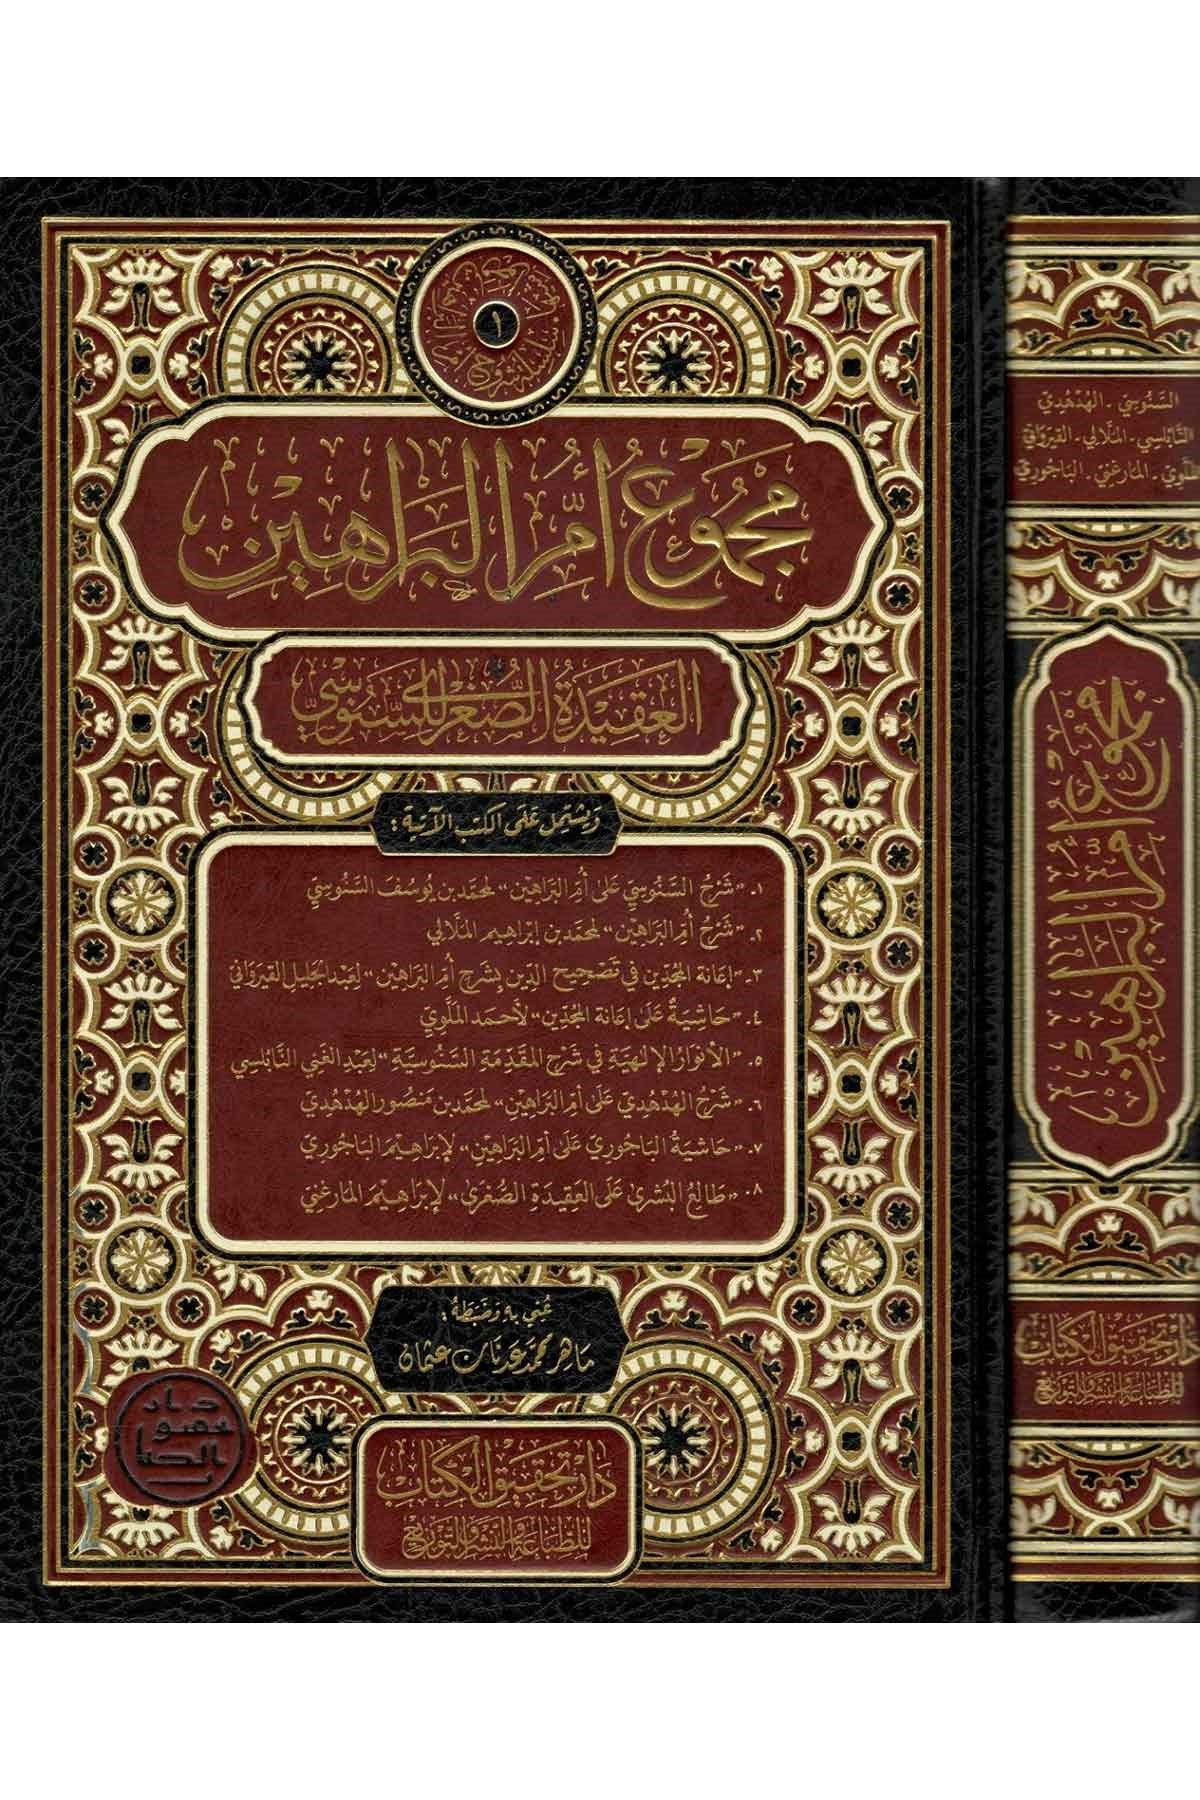 ١
مجموع أم البراهين
العقيدة الصغرى للسنوسي
ويشتمل على الكتب الآتية:
١. «شرح السنوسي على أم البراهين» لمحمد بن يوسف السنوسي
٢. «شرح أم البراهين» لمحمد بن إبراهيم الملالي
٣. «إعانة المجدين في تصحيح الدين بشرح أم البراهين» لعبد الجليل القيرواني
٤. «حاشية على إعانة المجدين» لأحمد الملوي
٥. «الأنوار الإلهية في شرح المقدمة السنوسية» لعبد الغني النابلسي
٦. «شرح الهدهدي على أم البراهين» لمحمد بن منصور الهدهدي
٧. «حاشية الباجوري على أم البراهين» لإبراهيم الباجوري
٨. «طالع البشرى على العقيدة الصغرى» لإبراهيم المارغني
عني به وضبطه:
ماهر محمد عدنان عثمان
دار تحقيق الكتاب
للطباعة والنشر والتوزيع
السنوسي - الهدهدي
النابلسي - الملالي - القيرواني
الملوي - المارغني - الباجوري
مجموع أم البراهين
دار تحقيق الكتاب
للطباعة والنشر والتوزيع